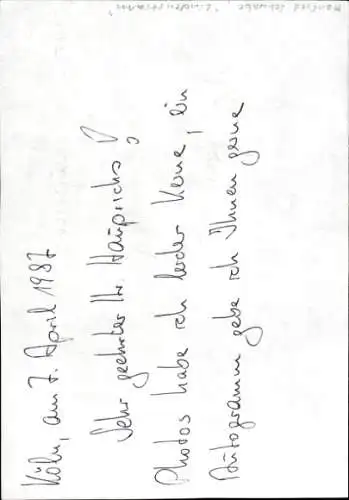 Köln, am 7. April 1987
Sehr geehrter Hr. Hauprichs!
Photos habe ich leider keine, ein
Autogramm gebe ich Ihnen gerne
Manfred Schwabe, "Lindenstrasse"